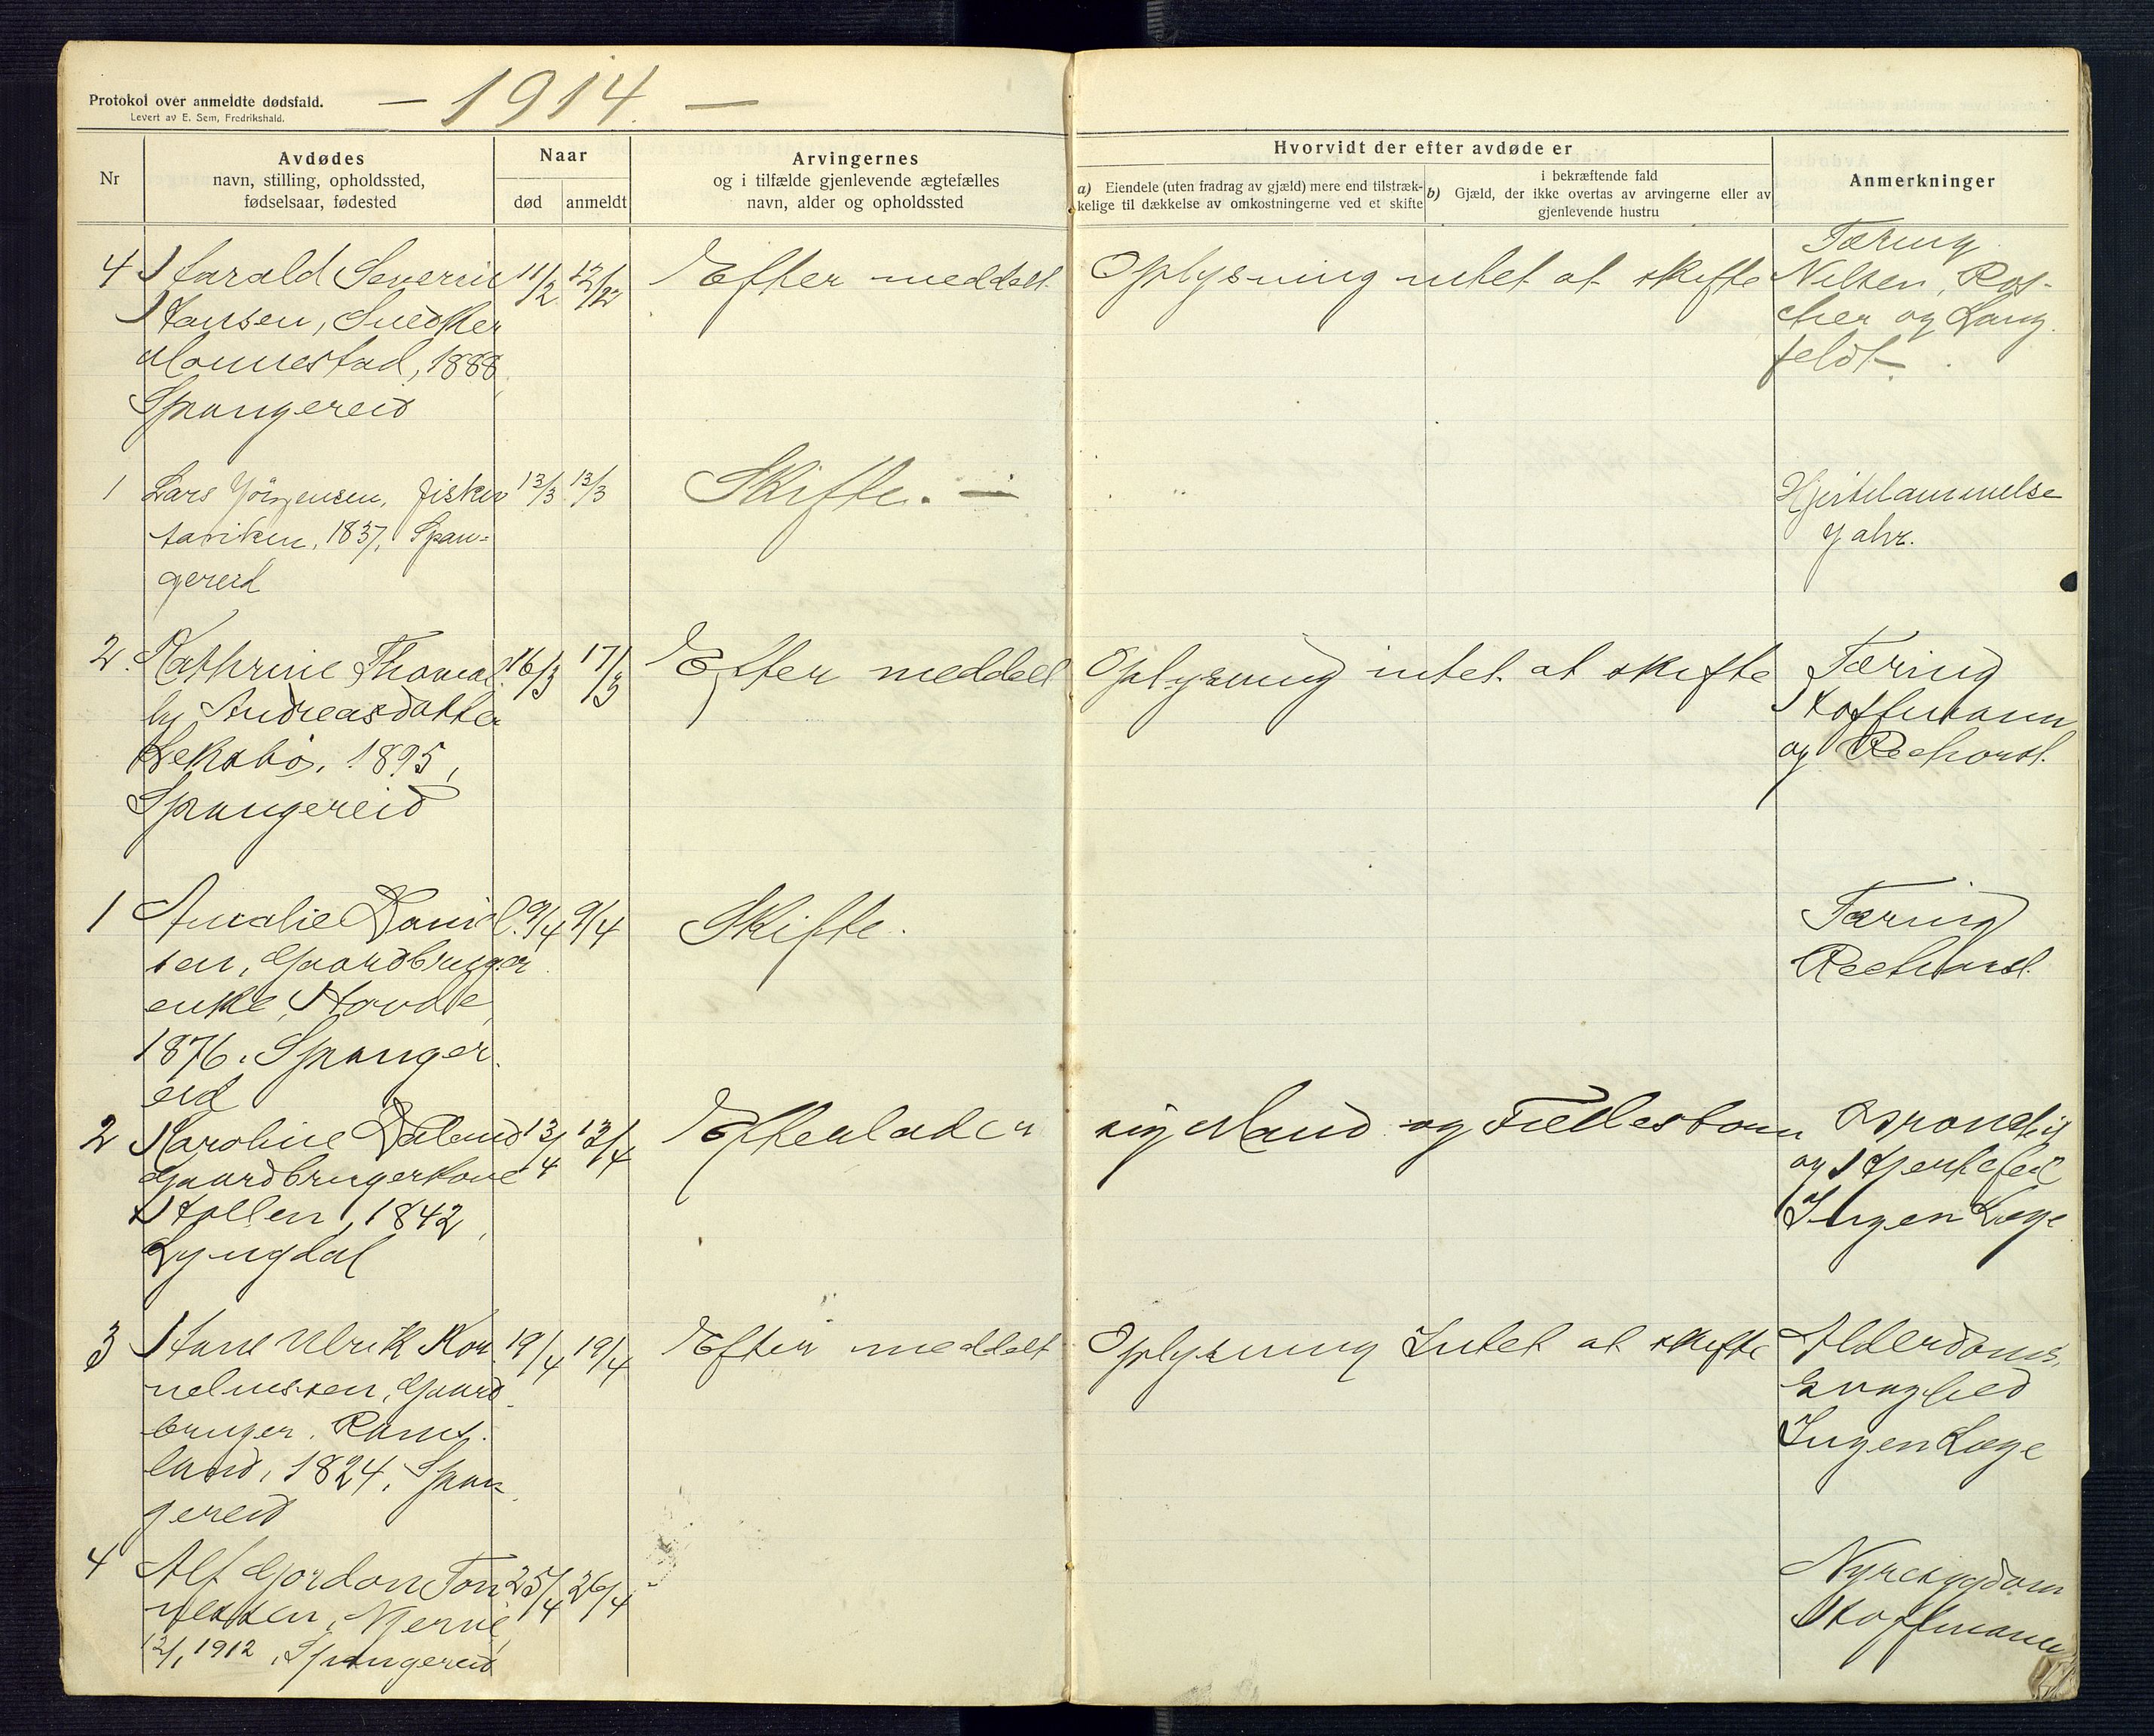 Protokol over anmeldte dødsfald.
Levert av E. Sem, Fredrikshald.
— 1914. —
Nr
Avdødes
navn, stilling, opholdssted,
fødselsaar, fødested
Naar
død
anmeldt
Arvingernes
og i tilfælde gjenlevende ægtefælles
navn, alder og opholdssted
Hvorvidt der efter avdøde er
a) Eiendele (uten fradrag av gjæld) mere end tilstræk-
kelige til dækkelse av omkostningerne ved et skifte
i bekræftende fald
b) Gjæld, der ikke overtas av arvingerne eller av
gjenlevende hustru
Anmerkninger
4 Harald Severin 11/2 12/2 Efter meddelt Oplysning intet at skifte Tæring
Hansen, Snedker Nilsen, Ros-
Monnestad, 1888 cher og Lang
Spangereid feldt
1 Lars Jörgensen, fisker 13/3 13/3 Skifte. — Hjertelammelse
1837, Span- Jahr.
gereid
2. Kathrine Thomal. 16/3 17/3 Efter meddelt Oplysning intet at skifte Tæring
by Andreasdatter Hoffmann
1895, og Reehorst.
Spangereid
1 Amalie Daniel. 9/4 9/4 Skifte. Tæring
sen, Gaardbruger Reehorst.
enke, Hovde,
1876. Spanger.
eid
2 Karoline Daland 13/4 13/4 Efterlader sig Mand og Fællesbarn
Gaardbrugerkone og Hjertefeil
1842, Ingen Læge
Lyngdal
3 Hans Ulrik Kor 19/4 19/4 Efter meddelt Oplysning Intet at skifte Alderdoms
neliussen, Gaard svaghed
bruger. Rams. Ingen Læge
land, 1824, Span
gereid
4 Alf Gordon Tön 25/4 26/4 Nyresygdom
nessen, Njerve, Hoffmann
12/1 1912, Spangereid